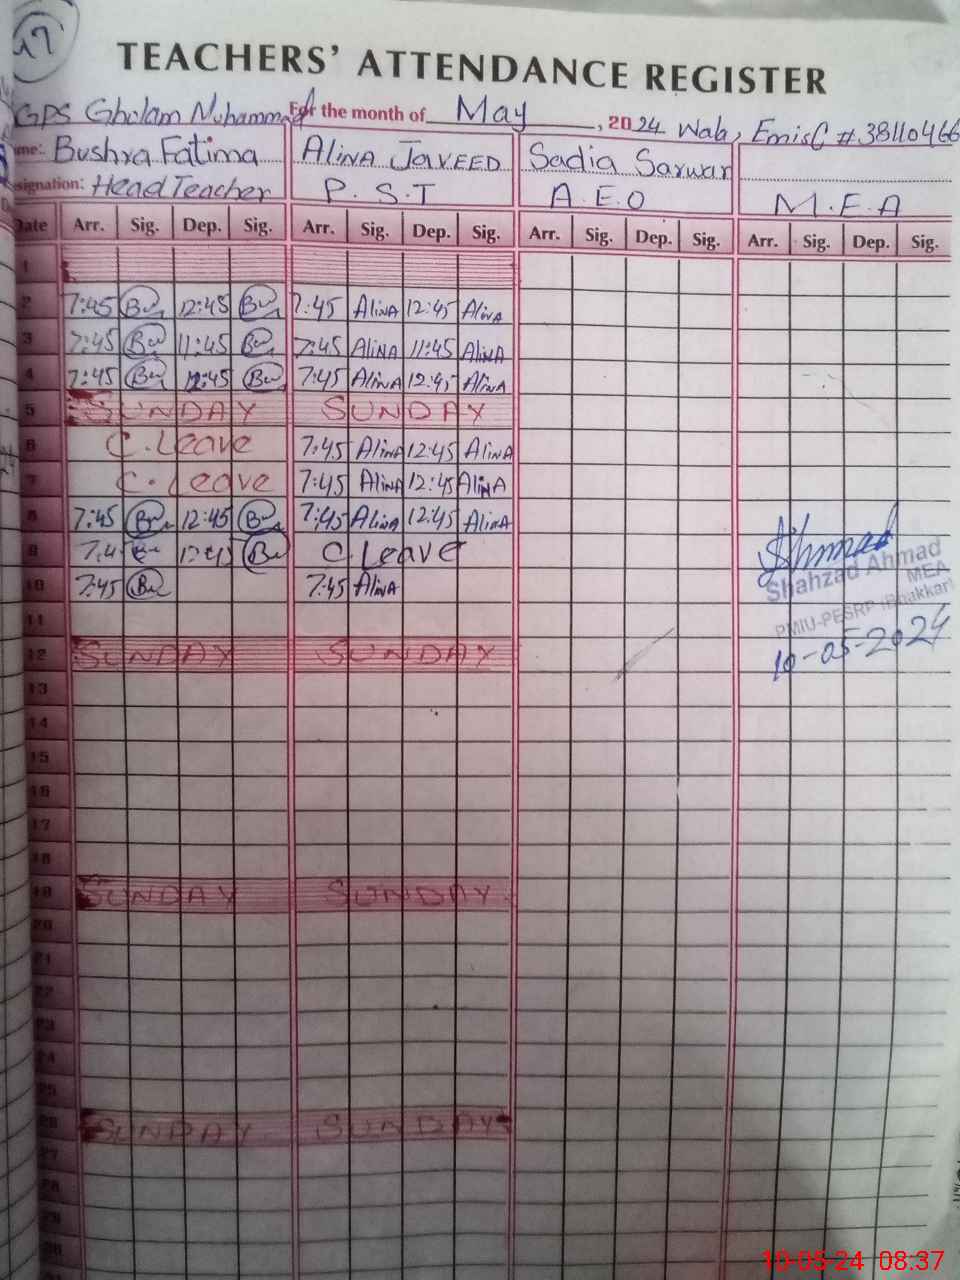 17
TEACHERS' ATTENDANCE REGISTER
GPS Gholam Muhammad For the month of May, 2024 Wala, Emis C # 38110466
me: Bushra Fatima ALINA JAVEED Sadia Sarwar
signation: Head Teacher P.S.T A.E.O M.E.A
Date Arr. Sig. Dep. Sig. Arr. Sig. Dep. Sig. Arr. Sig. Dep. Sig. Arr. Sig. Dep. Sig.
1
2 7:45 Bu 12:45 Bu 7:45 AlinA 12:45 Alina
3 7:45 Bu 11:45 Bu 7:45 AliNA 11:45 AlinA
4 7:45 Bu 12:45 Bu 7:45 AlinA 12:45 AlinA
5 SUNDAY SUNDAY
6 C.Leave 7:45 AlinA 12:45 AlinA
7 C.Leave 7:45 AlinA 12:45 AlinA
8 7:45 Bu 12:45 Bu 7:45 AlinA 12:45 AlinA
9 7:4 Bu 12:45 Bu C.Leave
10 7:45 Bu 7:45 AlinA
Ahmad
Shahzad Ahmad
MEA
PMIU-PESRP (Bhakkar)
10-05-2024
11
12 SUNDAY SUNDAY
13
14
15
16
17
18
19 SUNDAY SUNDAY
20
21
22
23
24
25
26 SUNDAY SUNDAY
27
28
29
30
10-05-24 08:37